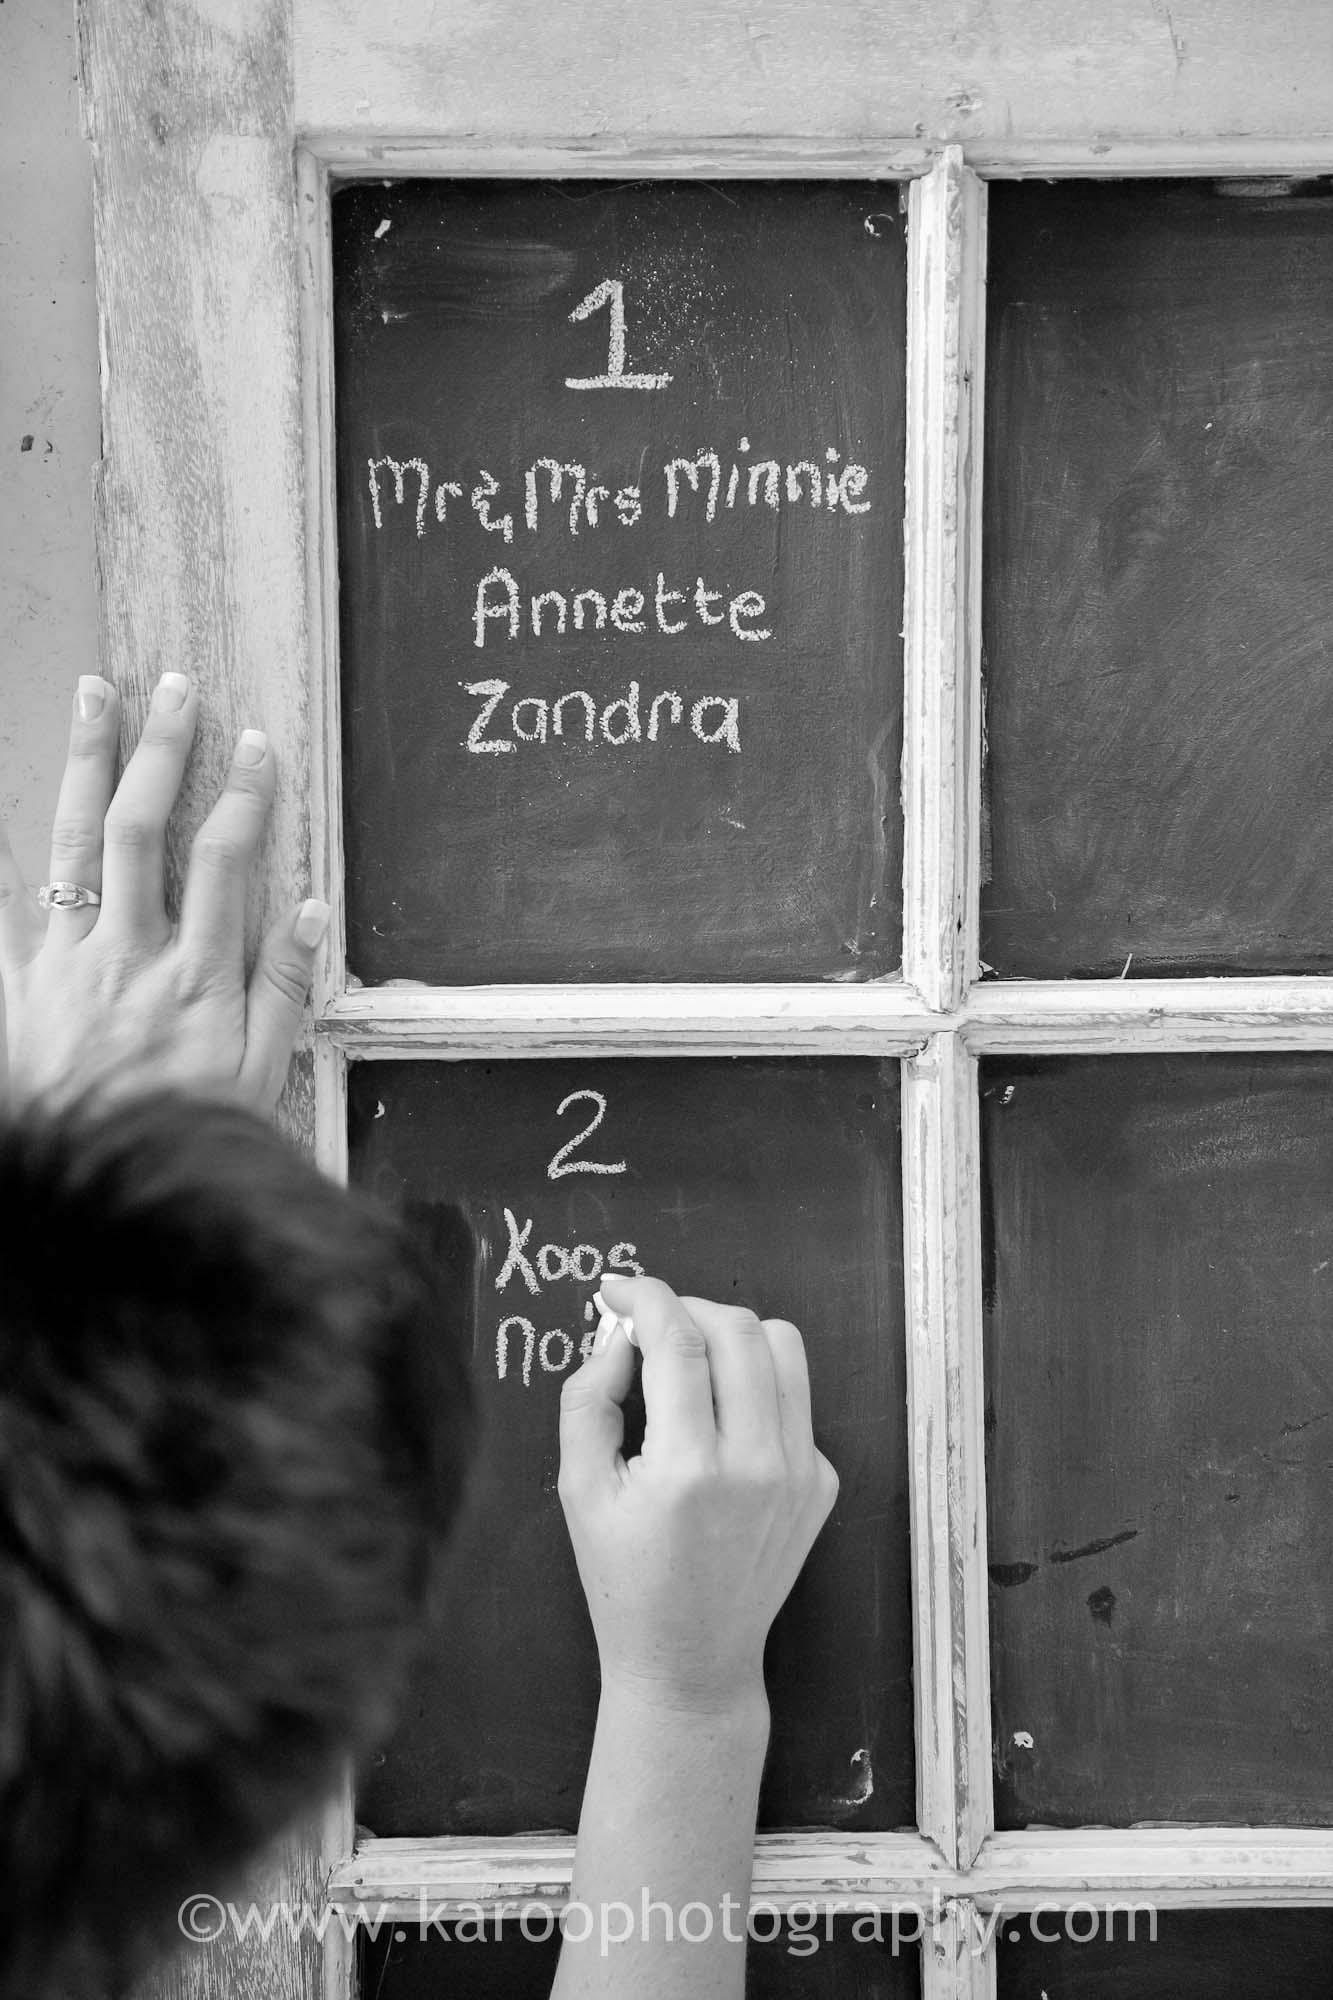 1
Mr & Mrs Minnie
Annette
Zandra
2
Koos
©www.karoophotography.com